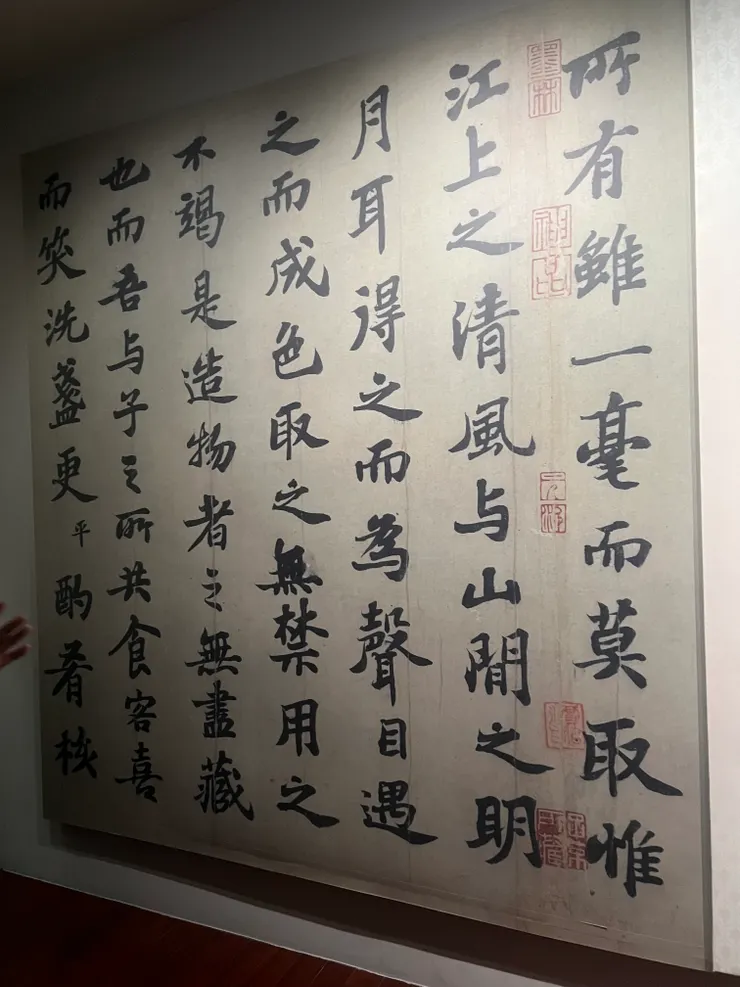 所有雖一毫而莫取惟
墨林
神品
江上之清風与山閒之明
月耳得之而為聲目遇
之而成色取之無禁用之
不竭是造物者之無盡藏
也而吾与子之所共食客喜
而笑洗盞更平酌肴核